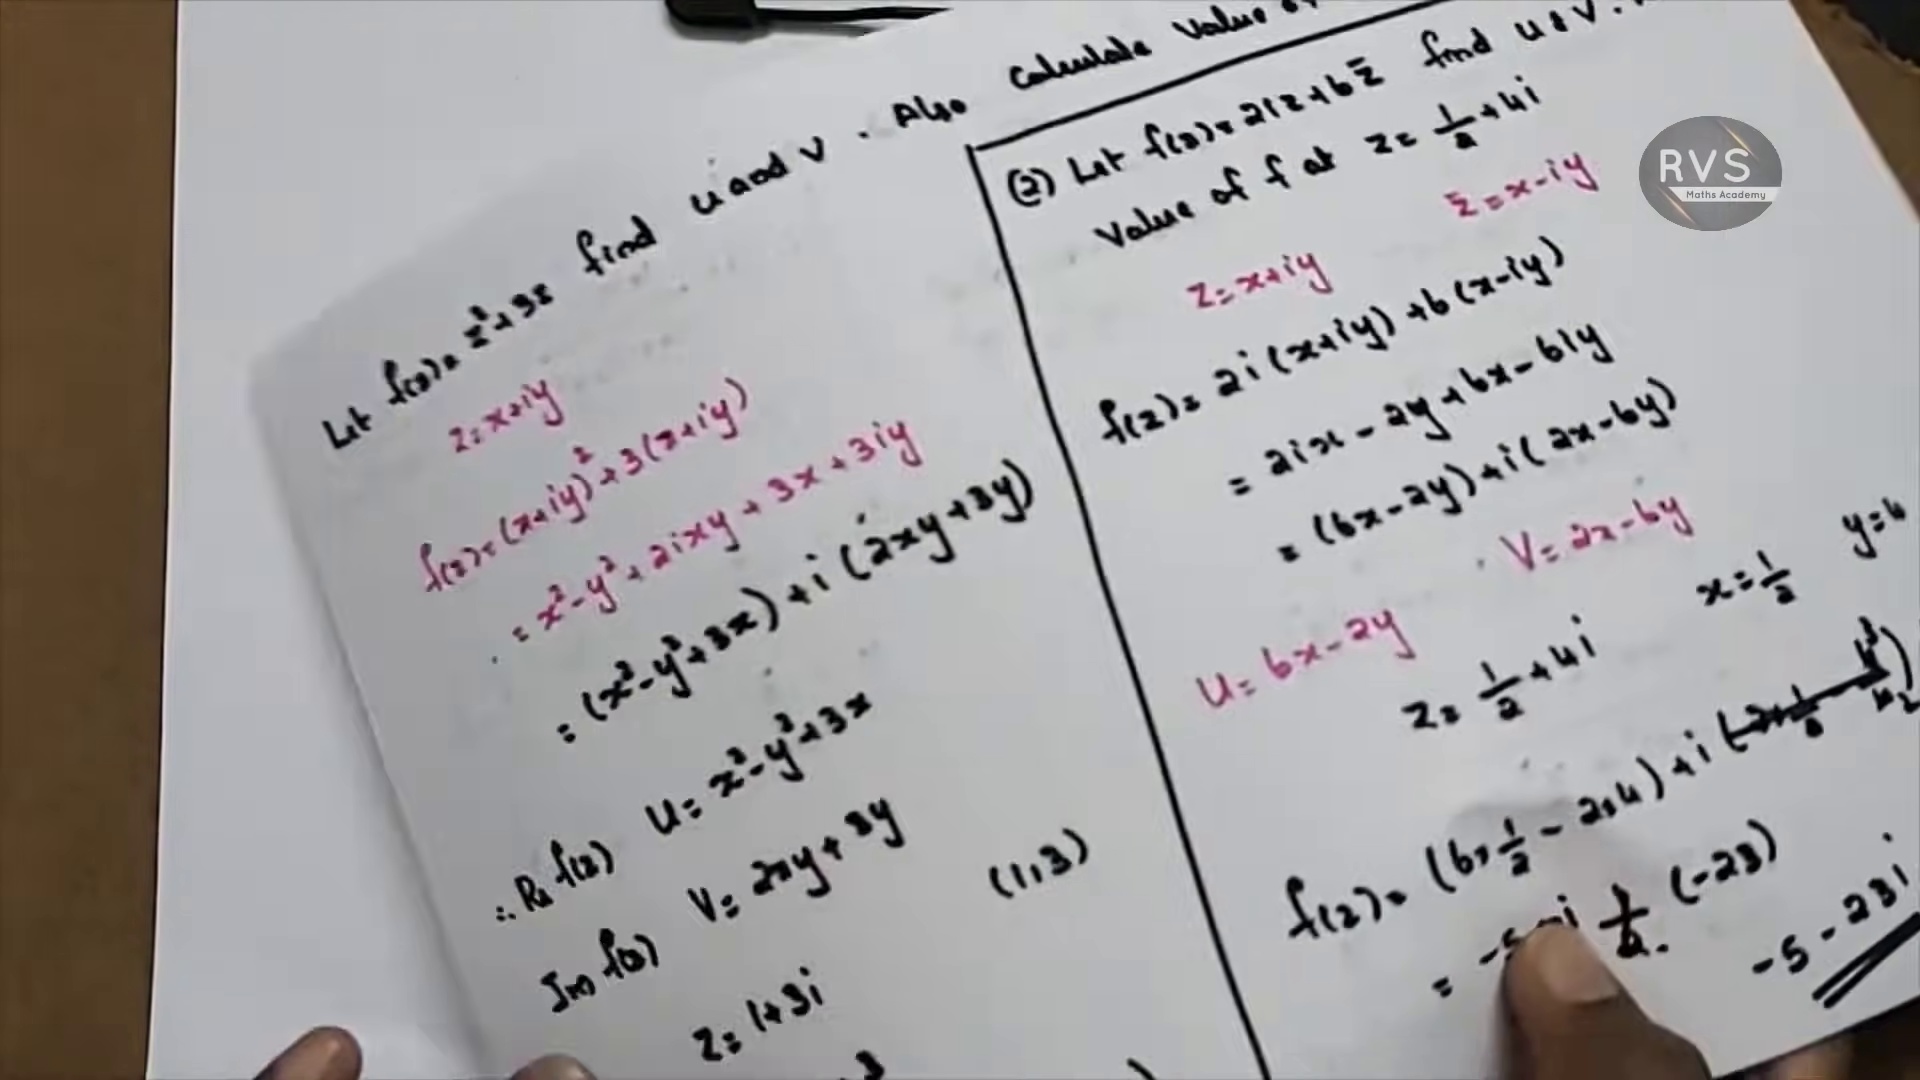 Let f(z) = z²+3z find u and v. Also Calculate Value of
z = x+iy
f(z) = (x+iy)²+3(x+iy)
= x²-y²+2ixy+3x+3iy
= (x²-y²+3x)+i(2xy+3y)
∴ Re f(z) u = x²-y²+3x
Im f(z) v = 2xy+3y
(1,3)
z = 1+3i
(2) Let f(z) = 2iz+6z̄ find u & v.
Value of f at z = 1/2+4i
z = x+iy z̄ = x-iy
f(z) = 2i(x+iy)+6(x-iy)
= 2ix-2y+6x-6iy
= (6x-2y)+i(2x-6y)
u = 6x-2y v = 2x-6y
z = 1/2+4i x = 1/2 y = 4
f(z) = (6×1/2-2×4)+i
= -5 i (-23)
-5-23i
RVS
Maths Academy